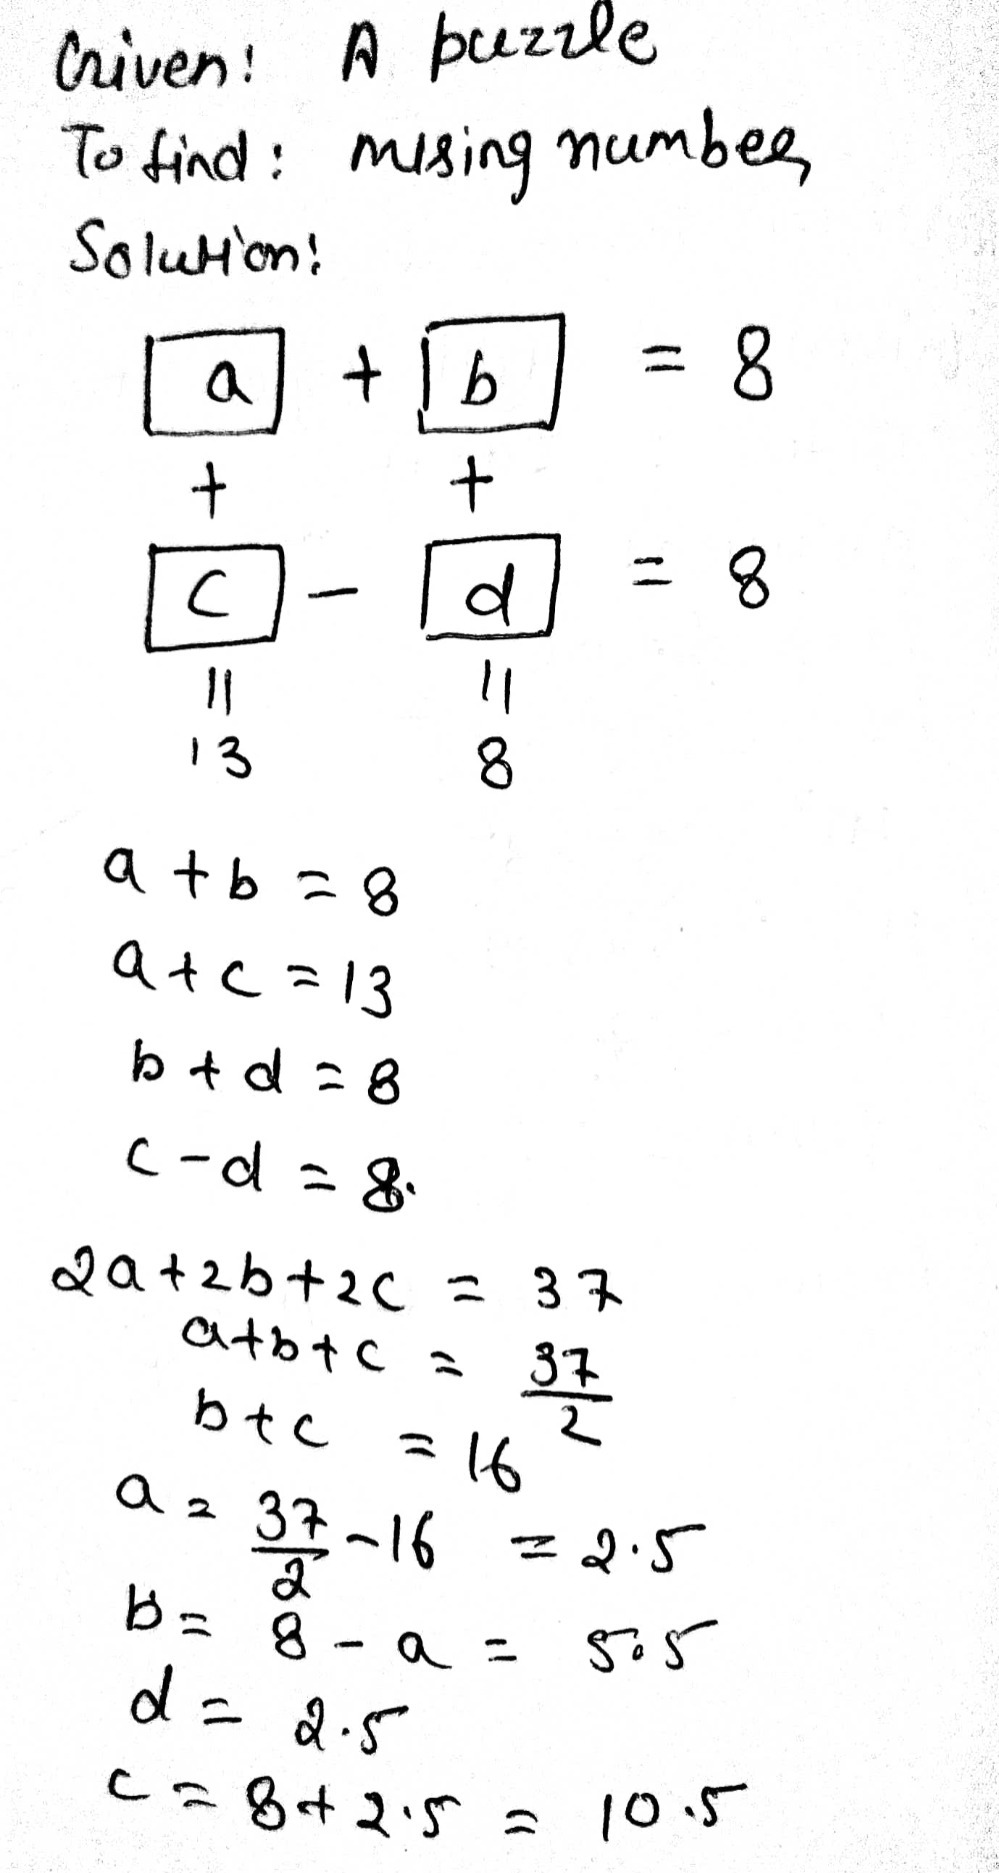 Given: A puzzle
To find: mising number
Solution:
a + b = 8
+ +
c - d = 8
11 11
13 8
a + b = 8
a + c = 13
b + d = 8
c - d = 8.
2a + 2b + 2c = 37
a + b + c = 37/2
b + c = 16
a = 37/2 - 16 = 2.5
b = 8 - a = 5.5
d = 2.5
c = 8 + 2.5 = 10.5